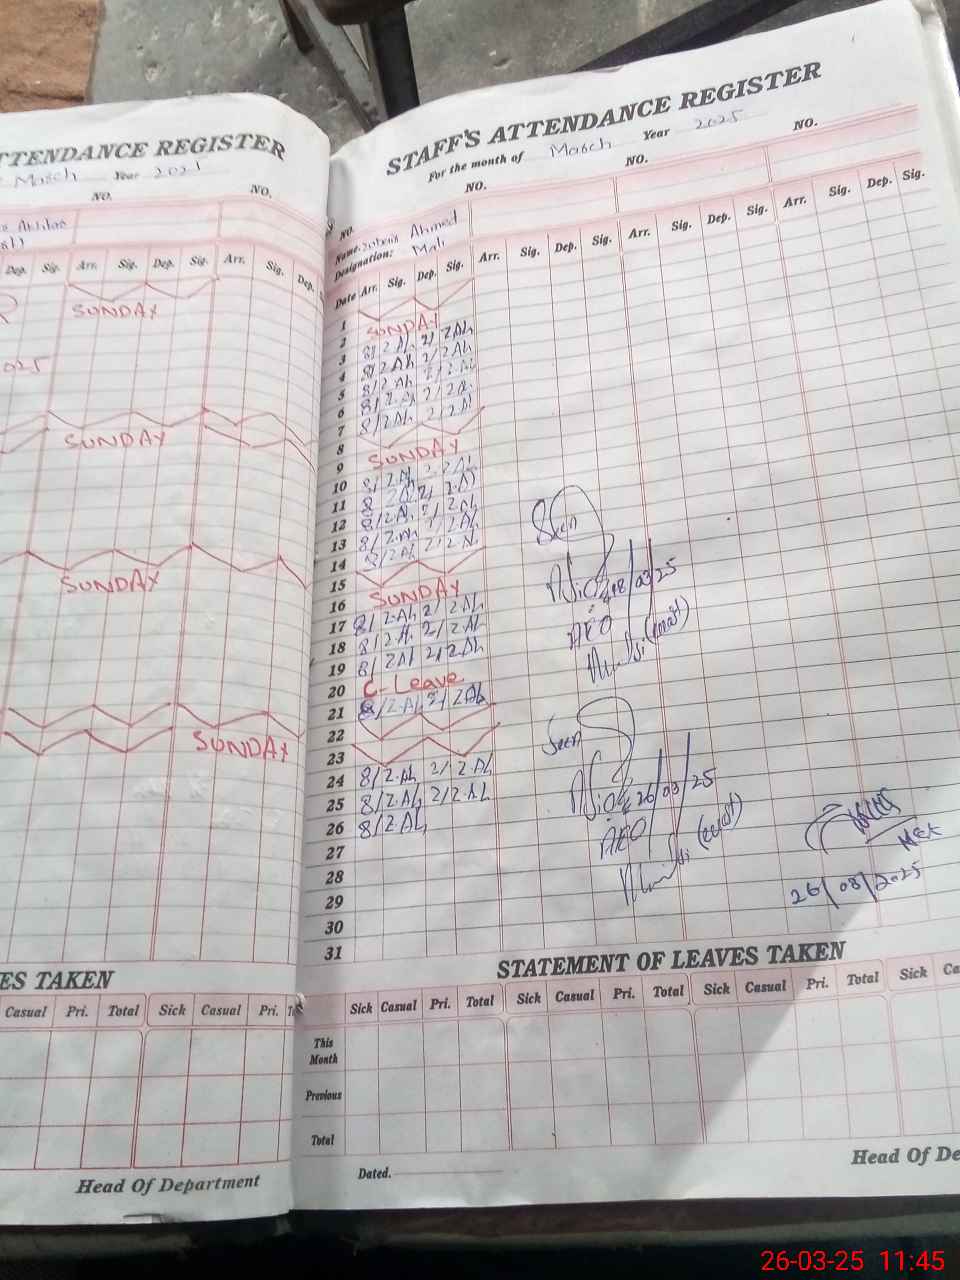 TTENDANCE REGISTER
March Year 2021
NO. NO.
Dep. Sig. Arr. Sig. Dep. Sig. Arr. Sig. Dep.
SUNDAY
025
SUNDAY
SUNDAY
SUNDAY
ES TAKEN
Casual Pri. Total Sick Casual Pri.
Head Of Department
STAFF'S ATTENDANCE REGISTER
For the month of March Year 2025
NO. NO. NO. NO.
Name. Ahmed
Designation: Mali
Date Arr. Sig. Dep. Sig. Arr. Sig. Dep. Sig. Arr. Sig. Dep. Sig. Arr. Sig. Dep. Sig.
1
2 SUNDAY
3 8/2 Ah 2/2 Ah
4 8/2 Ah 2/2 Ah
5 8/2 Ah 2/2 Ah
6 8/2 Ah 2/2 Ah
7 8/2 Ah 2/2 Ah
8
9 SUNDAY
10 8/2 Ah 2/2 Ah
11 8 2 Ah 2/2 Ah
12 8/2 Ah 2/2 Ah
13 8/2 Ah 2/2 Ah
14 8/2 Ah 2/2 Ah
15
16 SUNDAY
17 8/2 Ah 2/2 Ah
18 8/2 Ah 2/2 Ah
19 8/2 Ah 2/2 Ah
20 C-Leave
21 8/2 Ah 2/2 Ah
22
23
24 8/2 Ah 2/2 Ah
25 8/2 Ah 2/2 Ah
26 8/2 Ah
27
28
29
30
31
Seen
18/03/25
AEO
Seen
26/03/25
AEO
26/08/2025
STATEMENT OF LEAVES TAKEN
Sick Casual Pri. Total Sick Casual Pri. Total Sick Casual Pri. Total Sick Ca
This Month
Previous
Total
Dated.
Head Of De
26-03-25 11:45